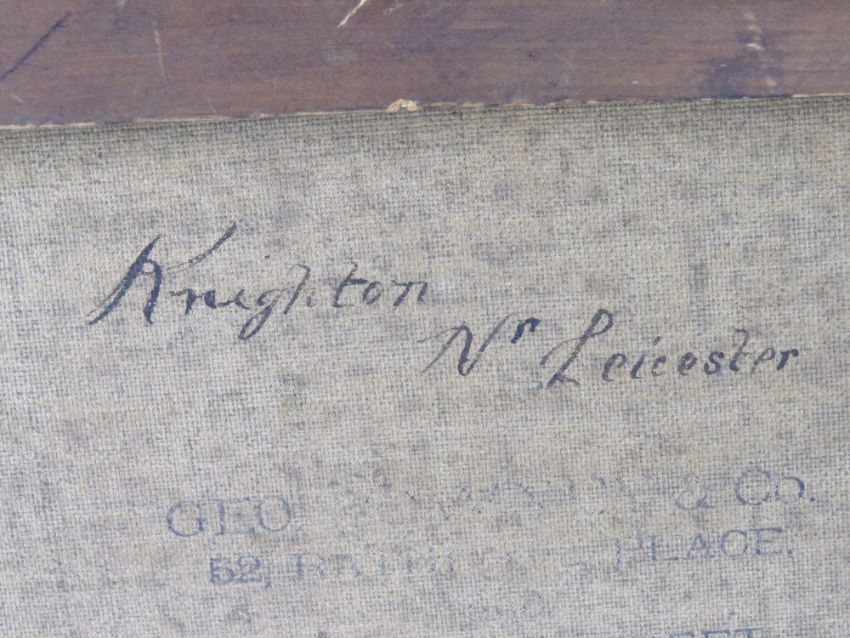 Knighton
Nr Leicester
GEO. & Co.
52, PLACE.